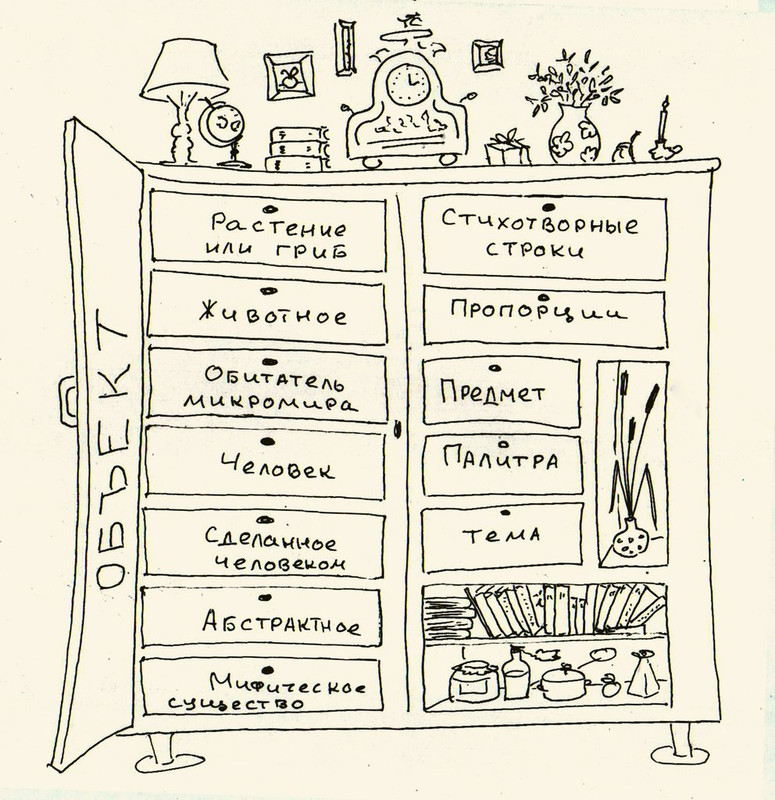 ОБЪЕКТ
Растение
или гриб
Животное
Обитатель
микромира
Человек
Сделанное
человеком
Абстрактное
Мифическое
существо
Стихотворные
строки
Пропорции
Предмет
Палитра
тема